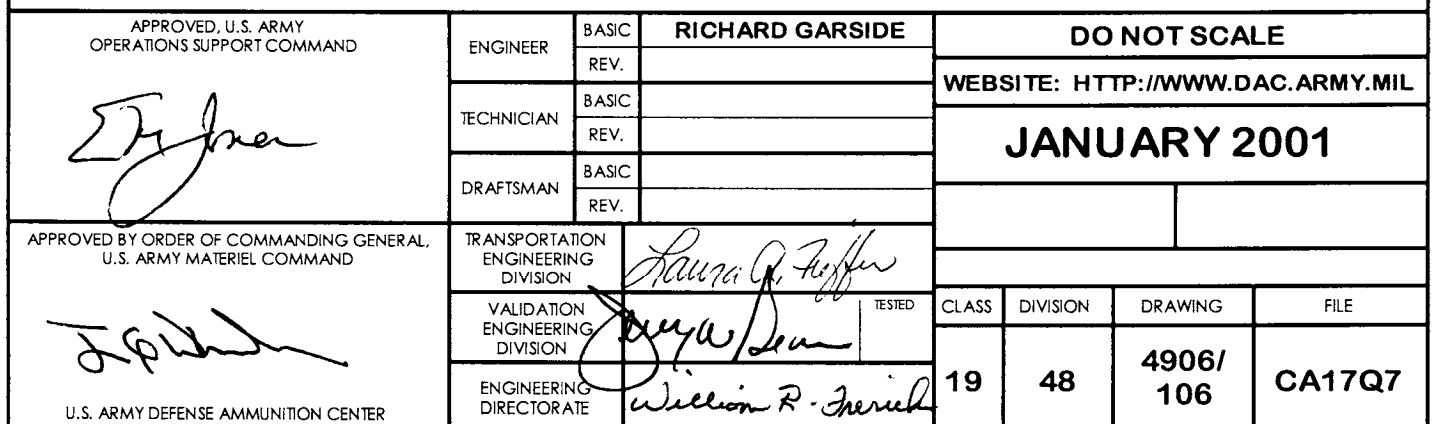 APPROVED, U.S. ARMY
OPERATIONS SUPPORT COMMAND
APPROVED BY ORDER OF COMMANDING GENERAL,
U.S. ARMY MATERIEL COMMAND
U.S. ARMY DEFENSE AMMUNITION CENTER
ENGINEER
BASIC
RICHARD GARSIDE
REV.
TECHNICIAN
BASIC
REV.
DRAFTSMAN
BASIC
REV.
TRANSPORTATION
ENGINEERING
DIVISION
Laura A.
VALIDATION
ENGINEERING
DIVISION
TESTED
ENGINEERING
DIRECTORATE
William R.
DO NOT SCALE
WEBSITE: HTTP://WWW.DAC.ARMY.MIL
JANUARY 2001
CLASS DIVISION DRAWING FILE
19 48 4906/ CA17Q7
106